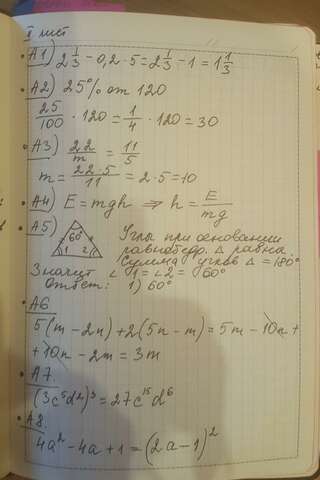 I лист
A1) 2 1/3 - 0,2 · 5 = 2 1/3 - 1 = 1 1/3
A2) 25% от 120
25/100 · 120 = 1/4 · 120 = 30
A3) 22/m = 11/5
m = 22·5/11 = 2·5 = 10
A4) E = mgh ⇒ h = E/mg
A5) 60° 1 2 Углы при основании
равнобедр. Δ равны.
Сумма углов Δ = 180°
Значит ∠1 = ∠2 = 60°
Ответ: 1) 60°
A6
5(m - 2n) + 2(5n - m) = 5m - 10n +
+ 10n - 2m = 3m
A7.
(3c⁵d²)³ = 27c¹⁵d⁶
A8.
4a² - 4a + 1 = (2a - 1)²